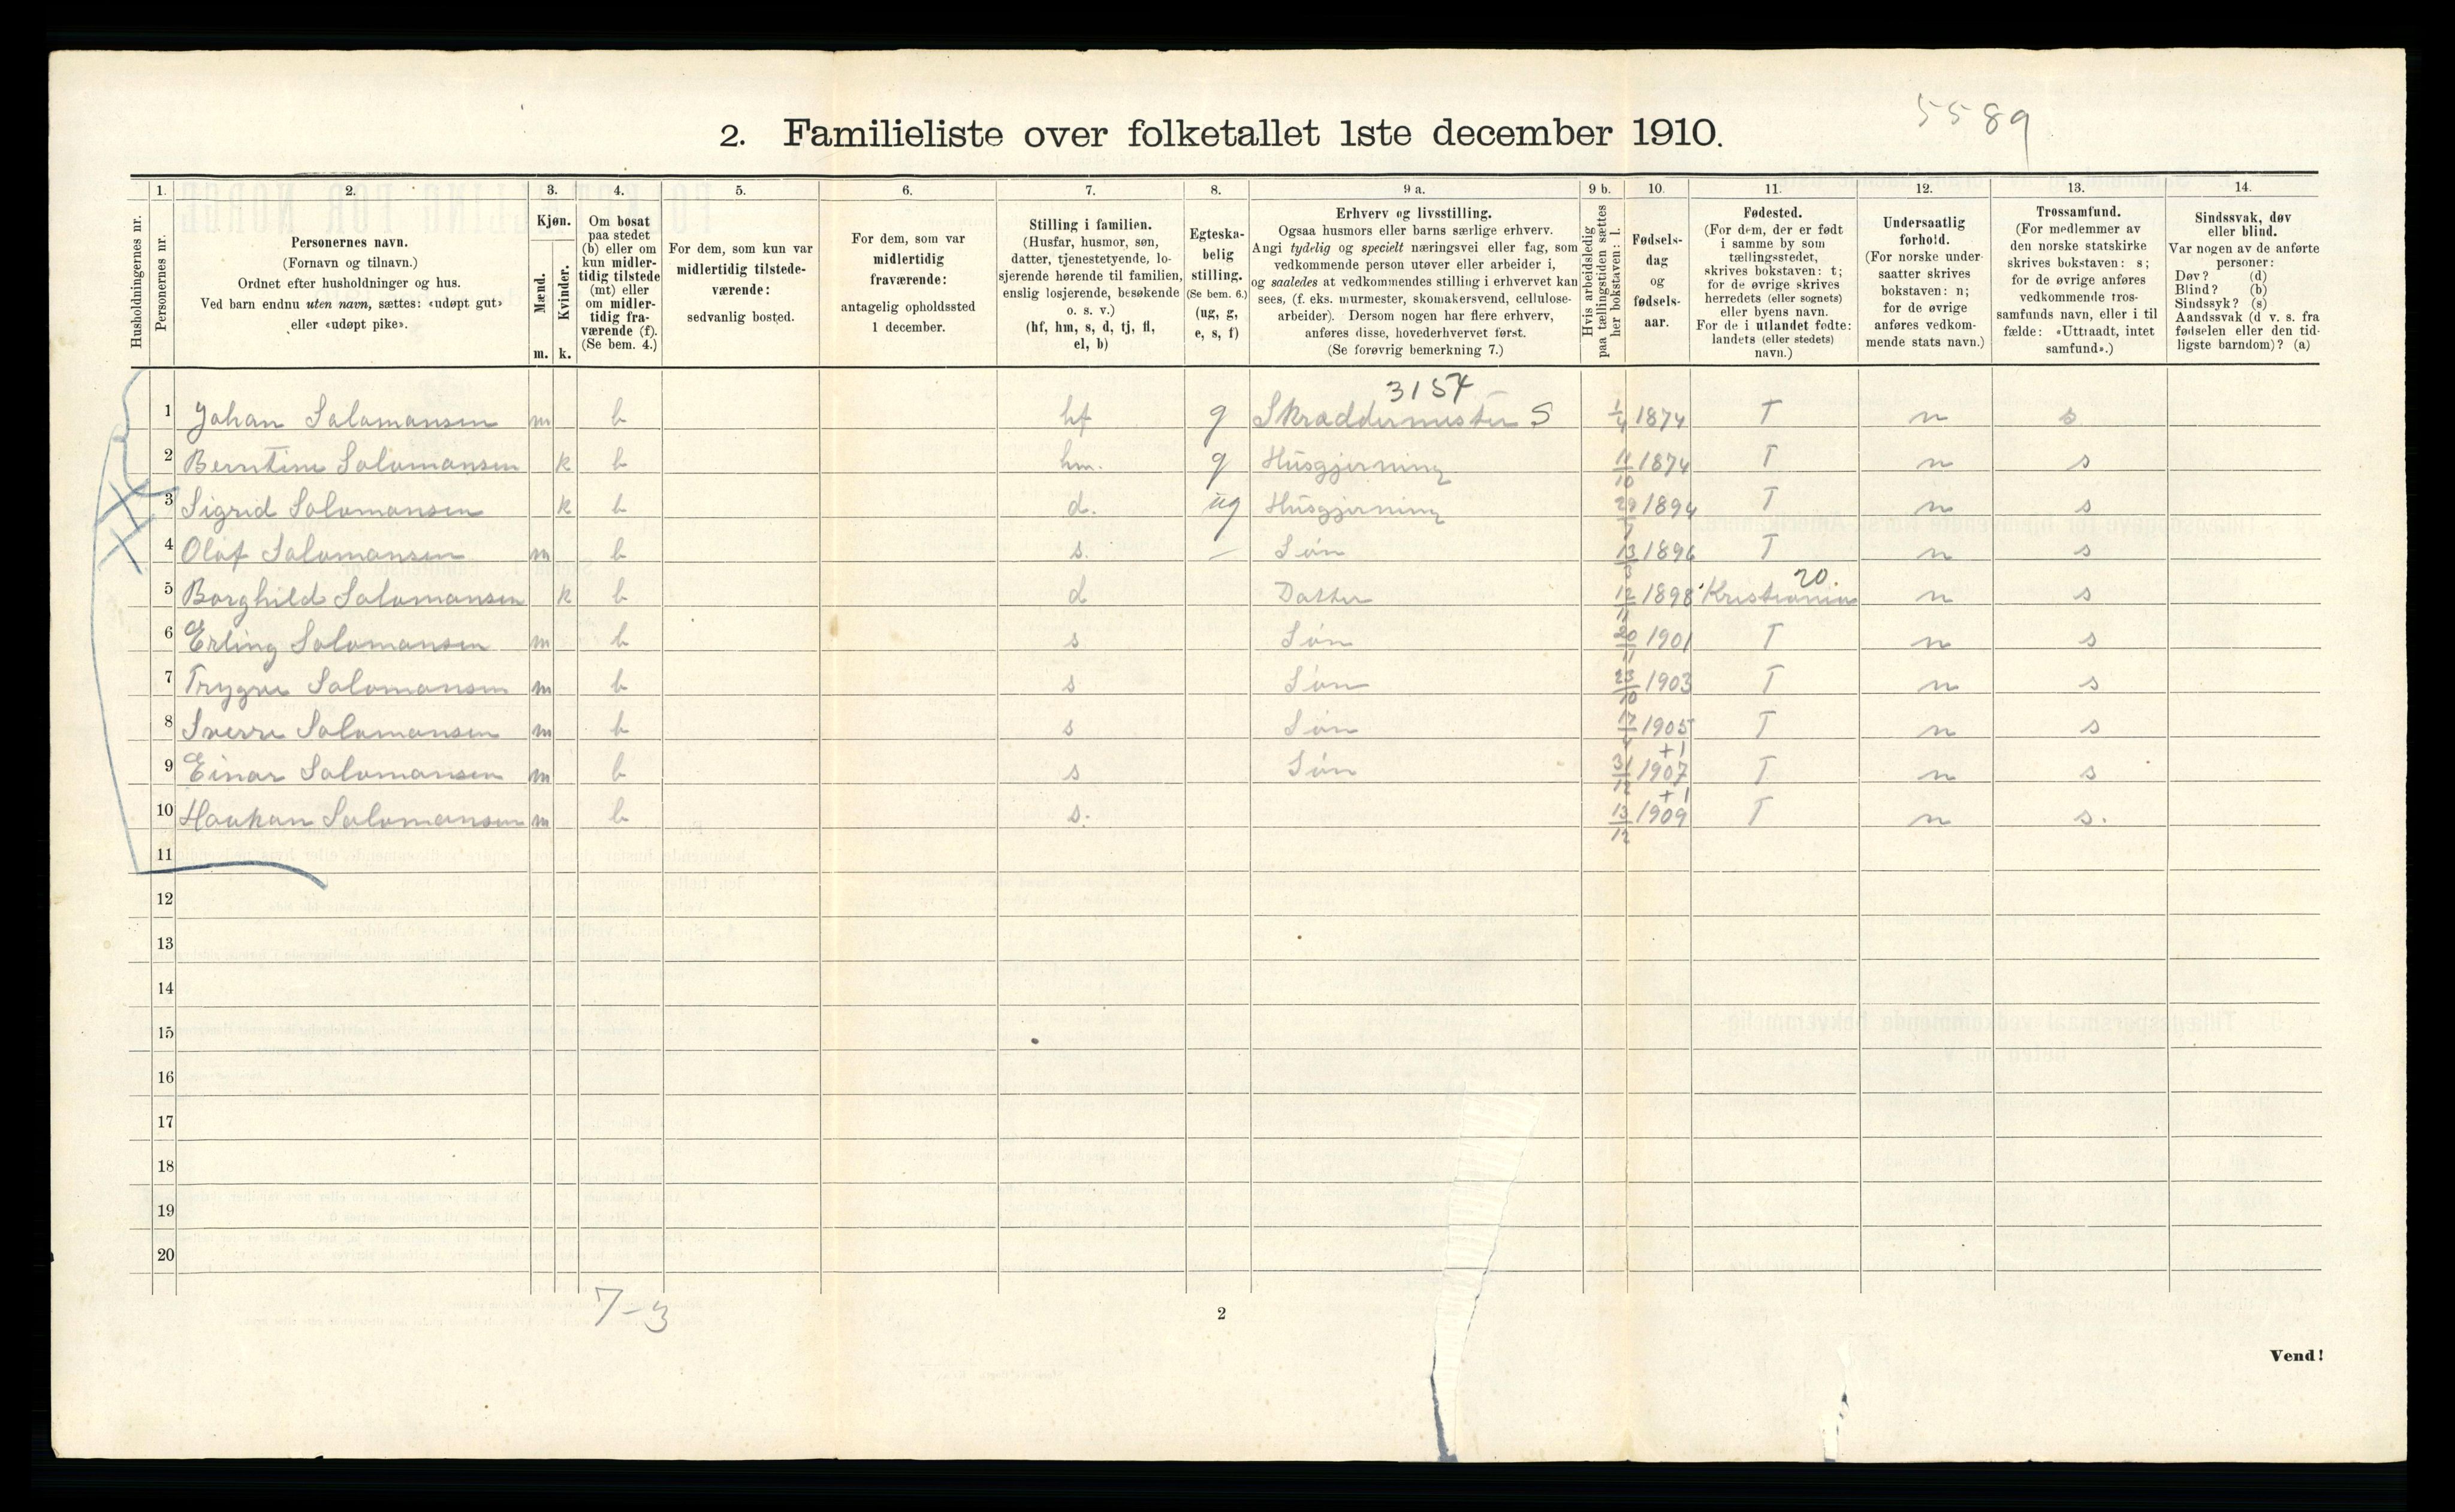 5589
2. Familieliste over folketallet 1ste december 1910.
1. 2. 3. 4. 5. 6. 7. 8. 9 a. 9 b. 10. 11. 12. 13. 14.
Husholdningernes nr.
Personernes nr.
Personernes navn.
(Fornavn og tilnavn.)
Ordnet efter husholdninger og hus.
Ved barn endnu uten navn, sættes: «udøpt gut»
eller «udøpt pike».
Kjøn.
Mænd.
Kvinder.
m. k.
Om bosat
paa stedet
(b) eller om
kun midler-
tidig tilstede
(mt) eller
om midler-
tidig fra-
værende (f).
(Se bem. 4.)
For dem, som kun var
midlertidig tilstede-
værende:
sedvanlig bosted.
For dem, som var
midlertidig
fraværende:
antagelig opholdssted
1 december.
Stilling i familien.
(Husfar, husmor, søn,
datter, tjenestetyende, lo-
sjerende hørende til familien,
enslig losjerende, besøkende
o. s. v.)
(hf, hm, s, d, tj, fl,
el, b)
Egteska-
belig
stilling.
(Se bem. 6.)
(ug, g,
e, s, f)
Erhverv og livsstilling.
Ogsaa husmors eller barns særlige erhverv.
Angi tydelig og specielt næringsvei eller fag, som
vedkommende person utøver eller arbeider i,
og saaledes at vedkommendes stilling i erhvervet kan
sees, (f. eks. murmester, skomakersvend, cellulose-
arbeider). Dersom nogen har flere erhverv,
anføres disse, hovederhvervet først.
(Se forøvrig bemerkning 7.)
Hvis arbeidsledig
paa tællingstiden sættes
her bokstaven: l.
Fødsels-
dag
og
fødsels-
aar.
Fødested.
(For dem, der er født
i samme by som
tællingsstedet,
skrives bokstaven: t;
for de øvrige skrives
herredets (eller sognets)
eller byens navn.
For de i utlandet fødte:
landets (eller stedets)
navn.)
Undersaatlig
forhold.
(For norske under-
saatter skrives
bokstaven: n;
for de øvrige
anføres vedkom-
mende stats navn.)
Trossamfund.
(For medlemmer av
den norske statskirke
skrives bokstaven: s;
for de øvrige anføres
vedkommende tros-
samfunds navn, eller i til
fælde: «Uttraadt, intet
samfund».)
Sindssvak, døv
eller blind.
Var nogen av de anførte
personer:
Døv? (d)
Blind? (b)
Sindssyk? (s)
Aandssvak (d v. s. fra
fødselen eller den tid-
ligste barndom)? (a)
3157
1 Johan Salomonsen m b hf g Skræddermester S 1/4 1874 T n s
2 Berntine Salomonsen k b hm. g Husgjerning 11/10 1874 T n s
3 Sigrid Salomonsen k b d. ug Husgjerning 29/7 1894 T n s
4 Olaf Salomonsen m b s. — Søn 13/3 1896 T n s
20.
5 Borghild Salomonsen k b d Datter 12/11 1898 Kristiania n s
6 Erling Salomonsen m b s Søn 20/11 1901 T n s
7 Trygve Salomonsen m b s Søn 23/10 1903 T n s
8 Sverre Salomonsen m b s Søn 17/4 1905 T n s
+1
9 Einar Salomonsen m b s Søn 31/12 1907 T n s
+1
10 Haakon Salomonsen m b s. 13/12 1909 T n s.
11
12
13
14
15
16
17
18
19
20
7-3
2
Vend!